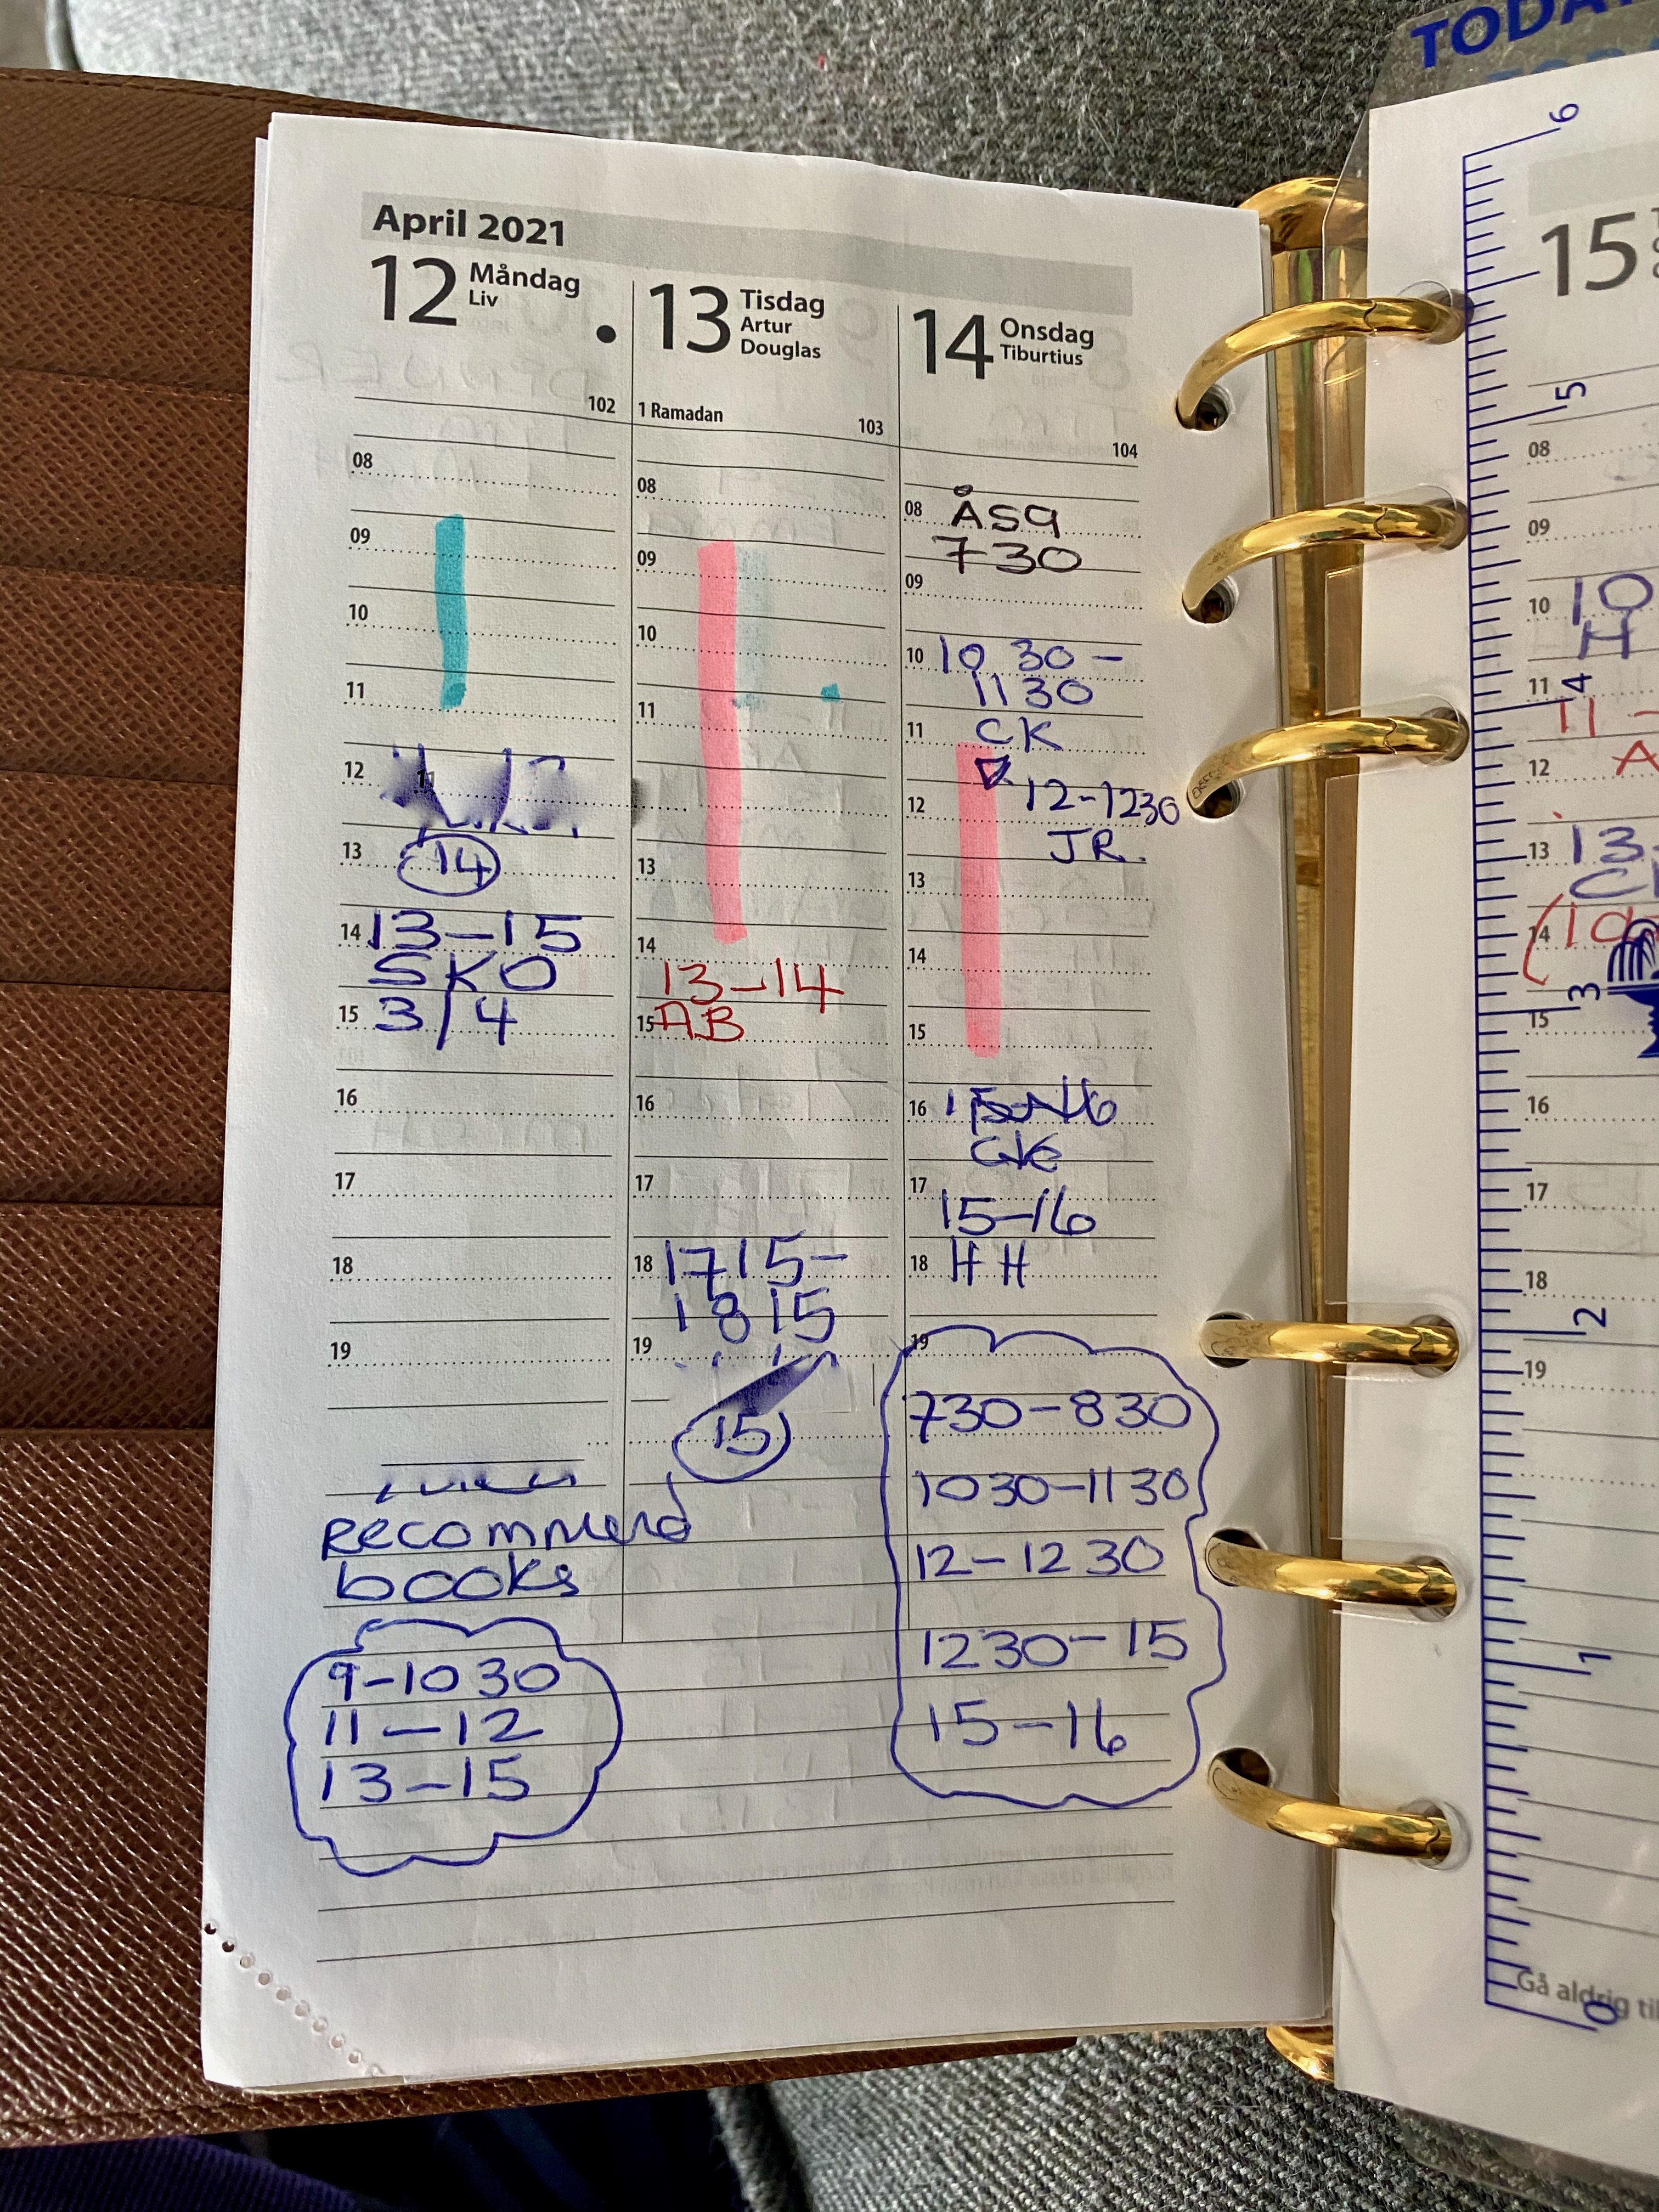 TODAY
April 2021
12 Måndag
Liv
102
08
09
10
11
12
13
14
14 13-15
SKO
15 3/4
16
17
18
19
recommend
books
9-10 30
11-12
13-15
13 Tisdag
Artur
Douglas
1 Ramadan 103
08
09
10
11
13
14
13-14
15 AB
16
17
18 1715-
1815
19
15
14 Onsdag
Tiburtius
104
08 ÅSQ
730
09
10 10 30-
1130
11 CK
12 12-1230
JR.
13
14
15
16 15-16
CK
17
15-16
18 HH
19
730-830
1030-1130
12-1230
1230-15
15-16
15
08
09
10 10
H
11
11-
12 A
13 13-
14
15
16
17
18
19
Gå aldrig til
6
5
4
3
2
1
0